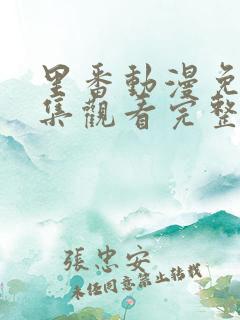 里番動漫免
集觀看完整
張忠安
未经同意禁止转载